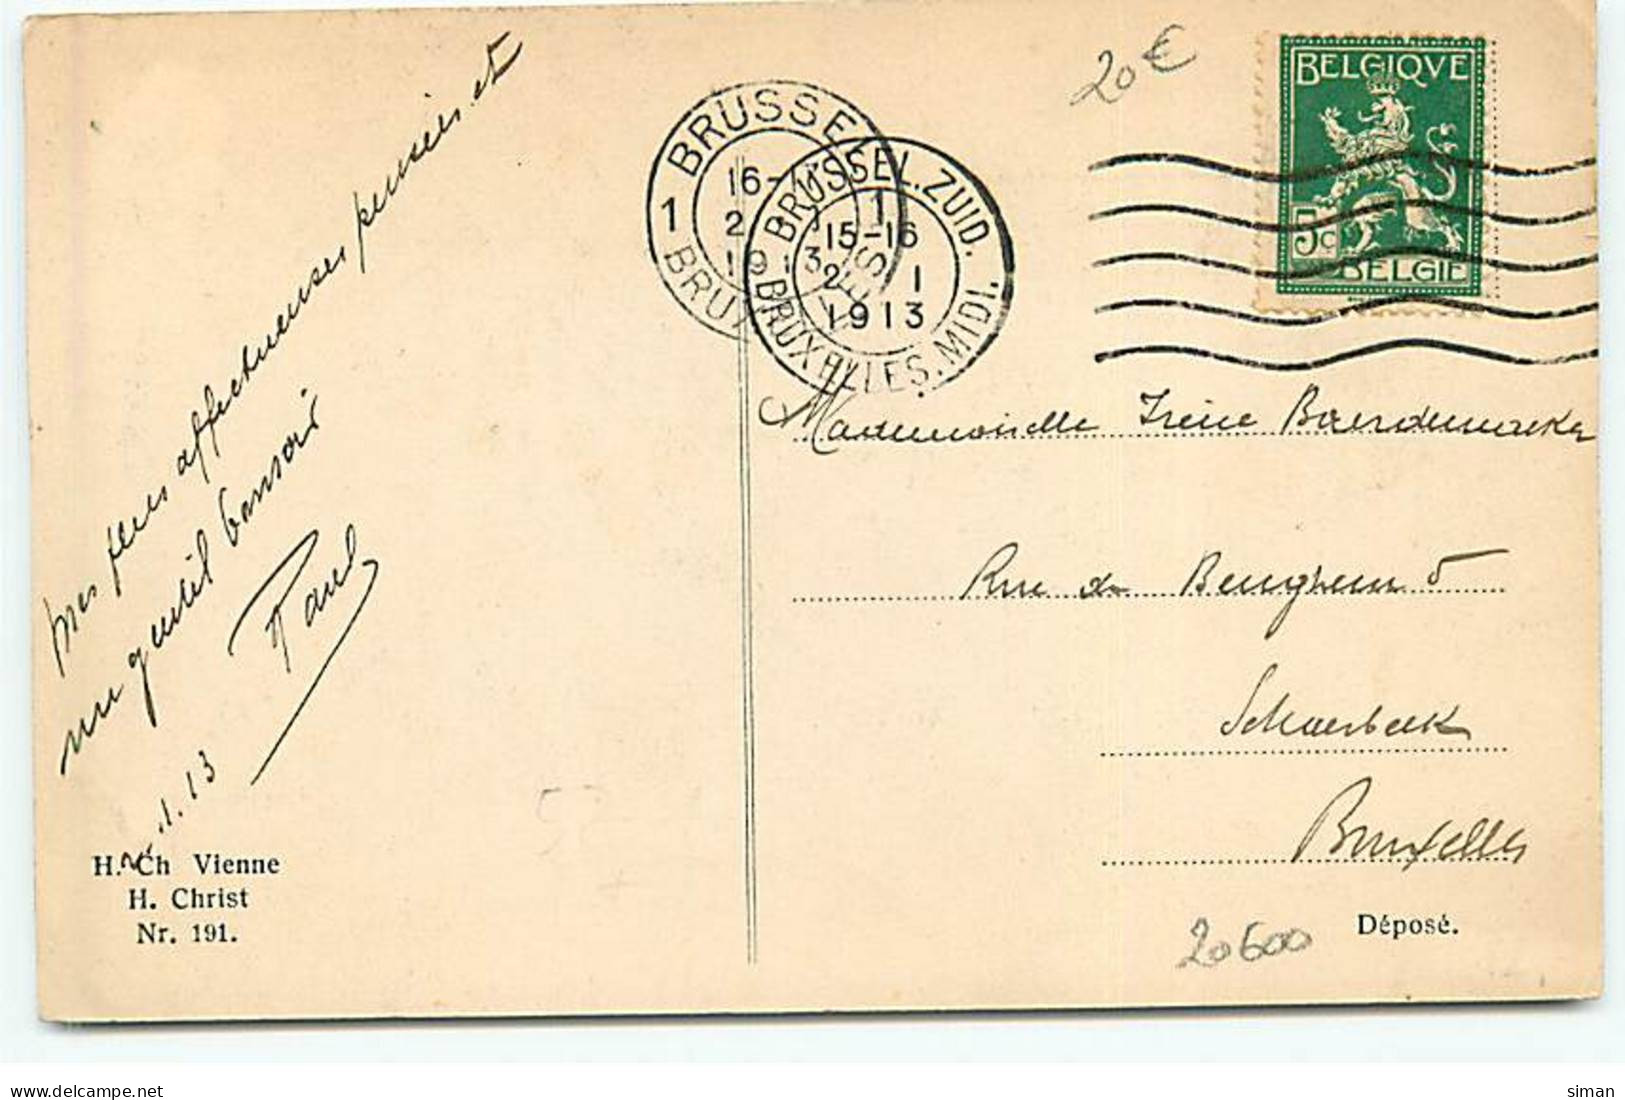 mes plus affectueuses pensées et
un gentil bonsoir
Paul
2.1.13
H. Ch Vienne
H. Christ
Nr. 191.
1 BRUSSEL 1
BRUX
16-
2
19 13
BRUSSEL.ZUID.
15-16
2 1
1913
BRUXELLES.MIDI.
20€
BELGIQVE
5c
BELGIË
Mademoiselle Irène Baerdemaeker
Rue de 5
Schaerbeek
Bruxelles
Déposé.
20600
delcampe.net
siman